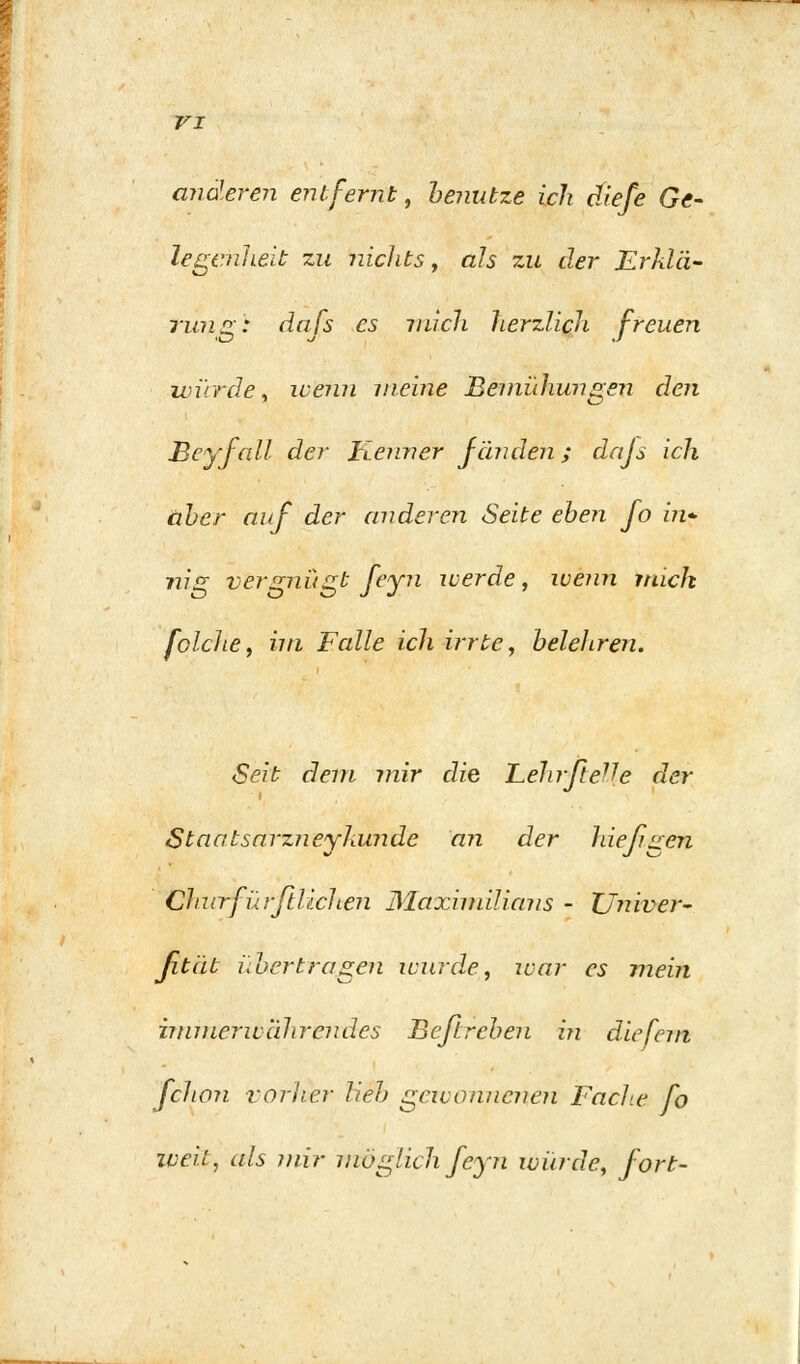 VI
anderen entfernt, benutze ich dieſe Ge-
legenheit zu nichts, als zu der Erklä-
rung: daſs es mich herzlich freuen
würde, wenn meine Bemühungen den
Beyfall der Kenner fänden; daſs ich
aber auf der anderen Seite eben ſo in-
nig vergnügt ſeyn werde, wenn mich
ſolche, im Falle ich irrte, belehren.
Seit dem mir die Lehrſtelle der
Staatsarzneykunde an der hieſigen
Churfürſtlichen Maximilians - Univer-
ſität übertragen wurde, war es mein
immerwährendes Beſtreben in dieſem
ſchon vorher lieb gewonnenen Fache ſo
weit, als mir möglich ſeyn würde, fort-